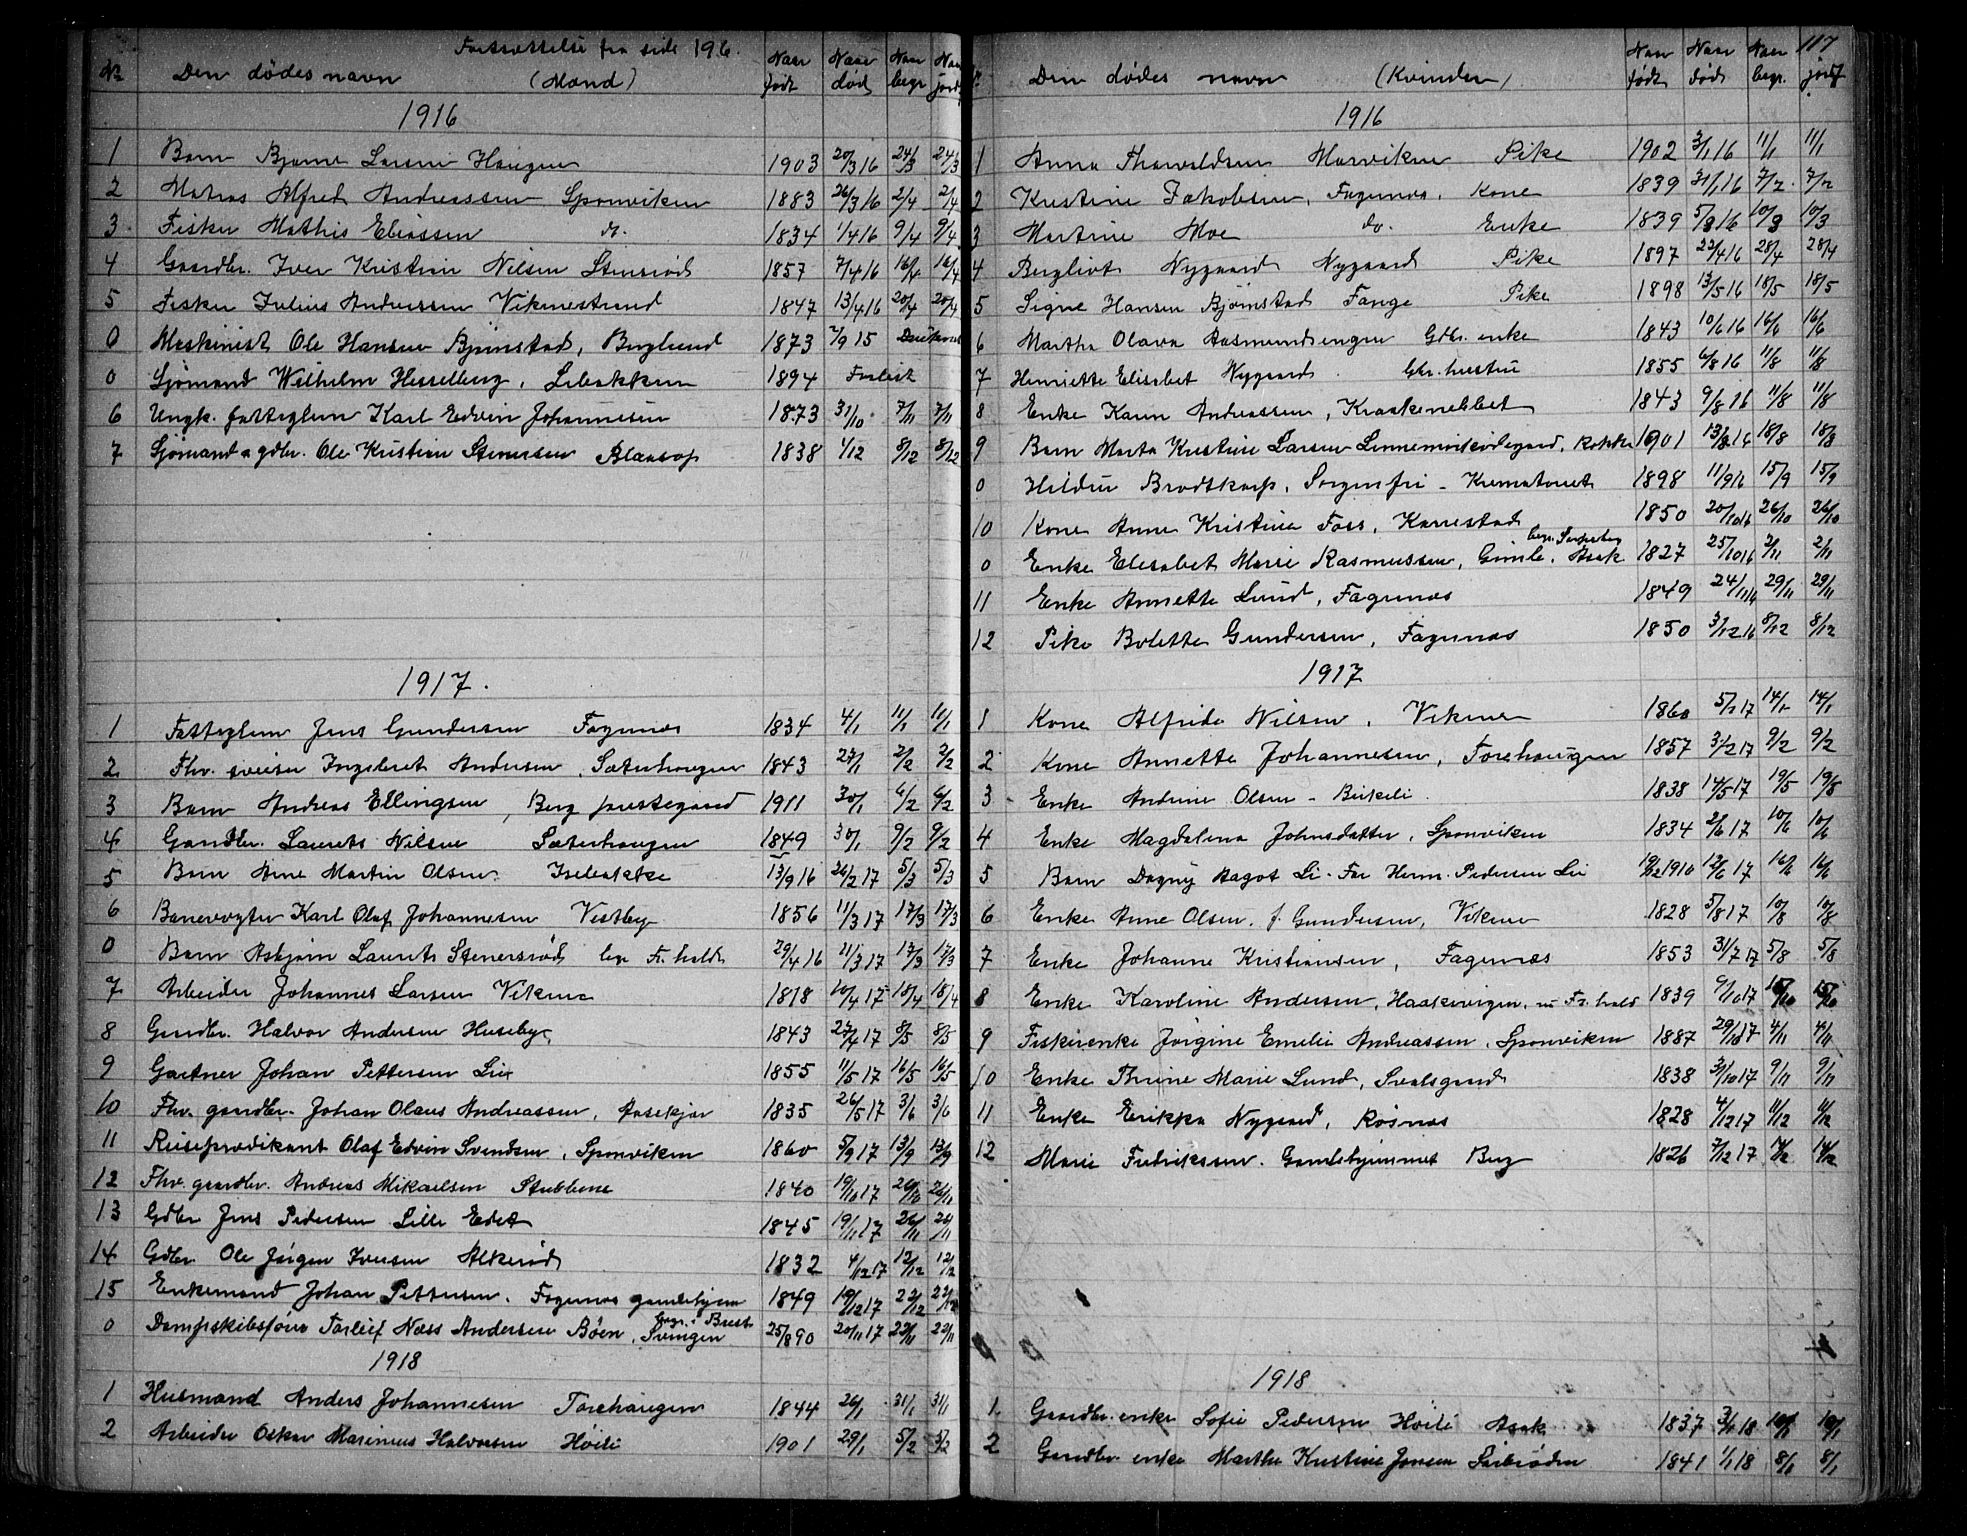 Fortsættelse fra side 196.
No Den dødes navn (Mænd) Naar født Naar død Naar begr. Naar jordf.
1916
1 Barn Bjarne Larsen Haugen 1903 20/3 16 24/3 24/3
2 Matros Alfred Andreassen Sponviken 1883 26/3 16 2/4 2/4
3 Fisker Mathis Eliassen do. 1834 1/4 16 9/4 9/4
4 Gaardbr. Iver Kristian Nilsen Stensrød 1857 7/4 16 16/4 16/4
5 Fisker Julius Andreassen Vikenestrand 1847 13/4 16 20/4 20/4
0 Maskinist Ole Hansen Bjørnstad, Berglund 1873 7/9 15
0 Sjømand Wilhelm Hesselberg, Libakken 1894 Forlist
6 Ungk. fatteglem Karl Edvin Johannesen 1873 31/10 7/11 7/11
7 Sjømand & gdbr. Ole Kristian Stenersen Blaasop 1838 1/12 8/12 8/12
1917.
1 Fatteglem Jens Gundersen Fagernæs 1834 4/1 11/1 11/1
2 Fhv. sveiser Ingebret Andersen, Sæterhaugen 1843 27/1 2/2 2/2
3 Barn Andreas Ellingsen, Berg prestegaard 1911 30/1 6/2 6/2
4 Gaardbr. Laurits Nilsen Sæterhaugen 1849 30/1 9/2 9/2
5 Barn Arne Martin Olsen Isebakke 13/9 16 26/2 17 5/3 5/3
6 Banevogter Karl Olaf Johannesen Vestby 1856 11/3 17 17/3 17/3
0 Barn Asbjørn Laurits Stenersrød begr Fr.hald 29/4 16 11/3 17 17/3 17/3
7 Arbeider Johannes Larsen Vikene 1818 10/4 17 18/4 18/4
8 Gaardbr. Halvor Andersen Huseby 1843 27/4 17 8/5 8/5
9 Gartner Johan Pettersen Lie 1855 11/5 17 16/5 16/5
10 Fhv. gaardbr. Johan Olaus Andreassen, Aasekjær 1835 26/5 17 3/6 3/6
11 Reiseprædikant Olaf Edvin Svendsen, Sponviken 1860 5/9 17 13/9 13/9
12 Fhv. gaardbr. Andreas Mikaelsen Stubbene 1840 19/10 17 26/10
13 Gdbr Jens Pedersen Lille Edet 1845 19/11 17 26/11 26/11
14 Gdbr. Ole Jørgen Iversen Alkerød 1832 4/12 17 12/12 12/12
15 Enkemand Johan Pettersen. Fagernæs gamlehjem 1849 19/12 17 22/12 22/12
begr. i Brest
0 Dampskibsfører Torleif Næss Andersen Bøen, Svingen 25/8 90 20/11 17 23/11 23/11
1918
1 Husmand Anders Johannesen Torehaugen 1844 26/1 31/1 31/1
2 Arbeider Oskar Marinius Halvorsen Høili 1901 29/1 5/2 5/2
117
Den dødes navn (Kvinder) Naar født Naar død Naar begr. jordf
1916
1 Anna Thorvaldsen Marviken Pike 1902 3/1 16 11/1 11/1
2 Kristine Jakobsen, Fagernæs, Kone 1839 31/1 16 7/2 7/2
3 Martine Moe do. Enke 1839 5/3 16 10/3 10/3
4 Bergliot Nygaard Nygaard Pike 1897 22/4 16 28/4 28/4
5 Signe Hansen Bjørnstad Fange Pike 1898 13/5 16 18/5 18/5
6 Martha Olava Aasmundsengen Gdbr. enke 1843 10/6 16 16/6 16/6
7 Henriette Elisabet Nygaard. Gbr. hustru 1855 6/8 16 11/8 11/8
8 Enke Karen Andreassen, Kraakenebbet 1843 9/8 16 11/8 11/8
9 Barn Marta Kristine Larsen 1901 18/8 18/8
0 Hildur Brodtkorp, Sorgenfri - Krematoriet 1898 11/9 16 15/9 15/9
10 Kone Anne Kristine Foss, Karrestad 1850 20/10 16 26/10 26/10
begr. Sarpsborg
0 Enke Elisabet Marie Rasmussen, Gimle, Asak 1827 25/10 16 2/11 2/11
11 Enke Annette Lund, Fagernæs 1849 24/11 16 29/11 29/11
12 Pike Bolette Gundersen, Fagernæs 1850 3/12 16 8/12 8/12
1917
1 Kone Alfride Nilsen, Vikene 1860 5/1 17 14/1 14/1
2 Kone Annette Johannesen, Torehaugen 1857 3/2 17 9/2 9/2
3 Enke Andrine Olsen - Birkeli. 1838 14/5 17 19/5 19/5
4 Enke Magdalena Johnsdatter, Sponviken 1834 2/6 17 10/6 10/6
5 Barn Dagny Aagot Li. Far Herm. Pedersen Lie 19/12 1910 12/6 17 16/6 16/6
6 Enke Anne Olsen, f. Gundersen, Vikene 1828 5/8 17 10/8 10/8
7 Enke Johanne Kristiansen, Fagernæs 1853 31/7 17 5/8 5/8
8 Enke Karoline Andersen, Haakevigen, nu Fr.hald 1839 9/10 17 15/10 15/10
9 Fiskerenke Jørgine Emelie Andreassen, Sponviken 1887 29/10 17 4/11 4/11
10 Enke Thrine Marie Lund, Svalsgaard 1838 31/10 17 9/11 9/11
11 Enke Erikka Nygaard, Røsnæs 1828 4/12 17 11/12 11/12
12 Marie Fredrikssen. Gamlehjemmet Berg 1826 7/12 17 14/12 14/12
1918
1. Gaardbr. enke Sofie Pedersen Høili Asak 1837 3/1 18 10/1 10/1
2 Gaardbr. enke Marthe Kristine Jonsen Sørbrøden 1841 1/1 18 8/1 8/1